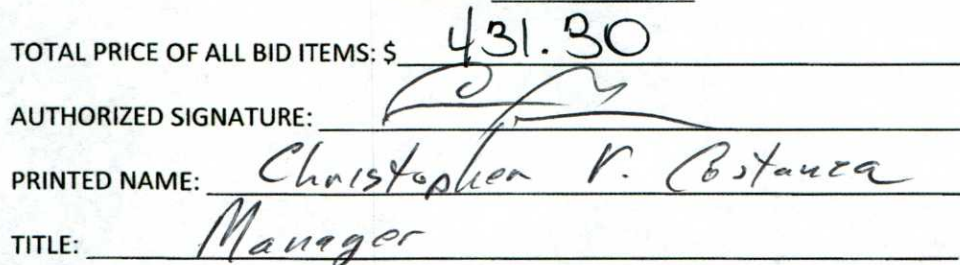 TOTAL PRICE OF ALL BID ITEMS: $ 431.30
AUTHORIZED SIGNATURE:
PRINTED NAME: Christopher V. Costanza
TITLE: Manager